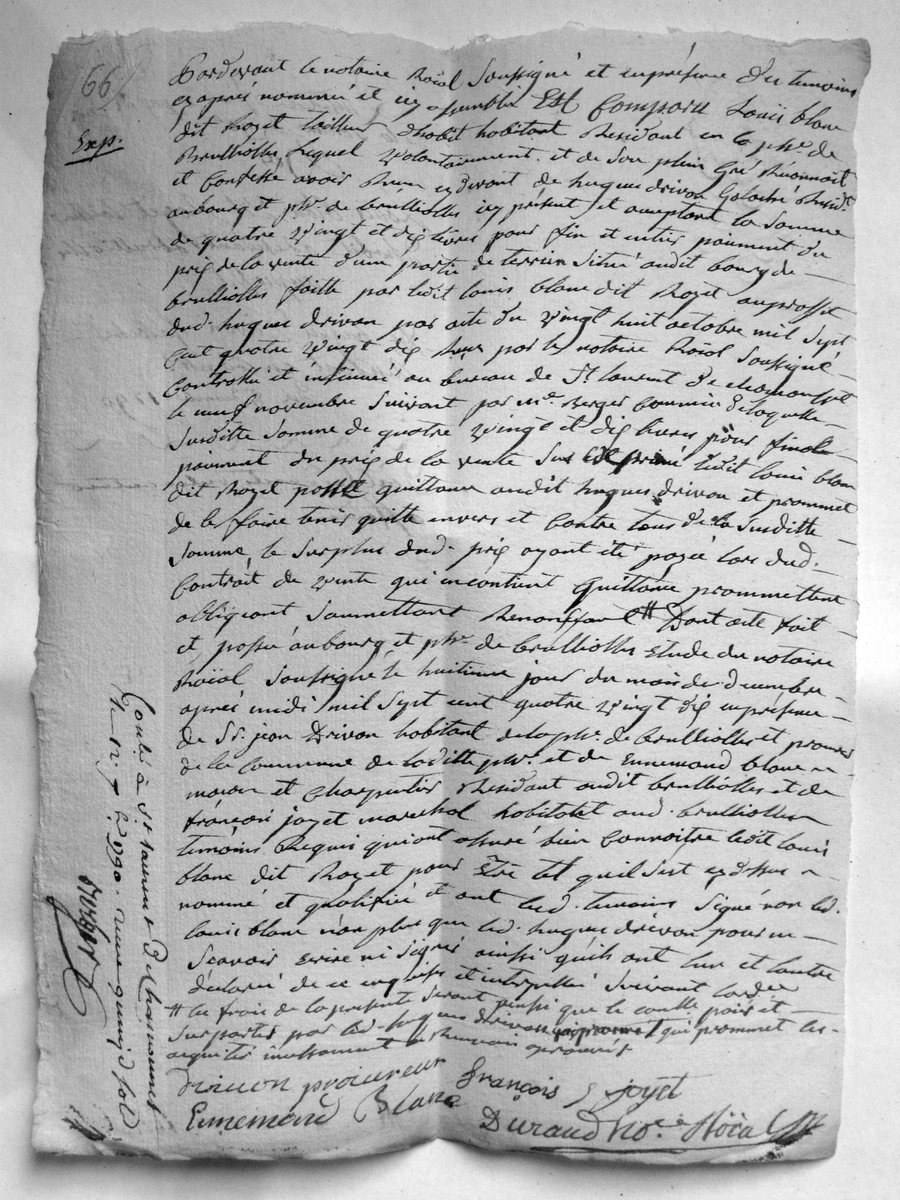 66
Exp.
Pardevant le notaire Roïal Soussigné et en présence des temoins
cy après nommés et icy assemblés Est Comparu Louis blanc
dit Rozet tailleur d'habit habitant Résidant en la phe. de
Brulliolles Lequel volontairement et de son plein Gré Reconnoît
et Confesse avoir Reçu cy devant de hugues drivon Galoché Résidt.
au bourg et phe. de brulliolles icy présent et acceptant la Somme
de quatre vingt et dix livres pour fin et entier paiment du
prix de la vente d'une partie de terrier Situé audit bourg de
brulliolles faitte par ledit louis blanc dit Rozet au proffit
dud. hugues drivon par acte du vingt huit octobre mil Sept
cent quatre vingt dix Reçu par le notaire Roïal Soussigné
Controllé et insinué au bureau de St. laurent de chamousset
le neuf novembre Suivant par mr. verger Commis de laquelle
Susditte Somme de quatre vingt et dix livres pour final
paiment du prix de la vente Sus ledit louis blanc
dit Rozet passe quittance audit hugues drivon et prommet
de le faire tenir quitte envers et Contre tous de la Susditte
Somme, le Surplus dud. prix ayant été payé lors dud.
Contrait de vente qui en contient Quittance prommettent
obligeant Soumettant Renonçant # Dont acte fait
et passé au bourg et phe. de brulliolles Etude du notaire
Roïal Soussigné le huitieme jour du mois de decembre
après midi mil Sept cent quatre vingt dix en présence
de Sr. jean Drivon habitant de la phe. de brulliolles et procureur
de la Commune de laditte phe. et de Ennemond blanc
maçon et Charpentier Résidant audit brulliolles et de
françois joyet marechal habitant aud. brulliolles
temoins Requis qui ont assuré bien Connoitre ledit louis
blanc dit Rozet pour Etre tel qu'il S'est cy dessus
nommé et qualiffié et ont lesd. temoins Signé non led.
louis blanc non plus que led. hugues drivon pour ne
Scavoir ecrire ni Signer ainsi qu'ils ont lun et lautre
déclaré de ce enquis et interpellé Suivant lordce
# les frais de la présente Seront ainsi que le coutte païés et
Supportés par led. hugues drivon qui prommet les
aquiter incessament et Renvoi aprouvés
Drivon procureur
François joyet
Ennemond Blanc
Durand No.re Röial
Conlé à St. laurent de chamousset
le 12 xbre 1790. Reçu quinze sols
verger